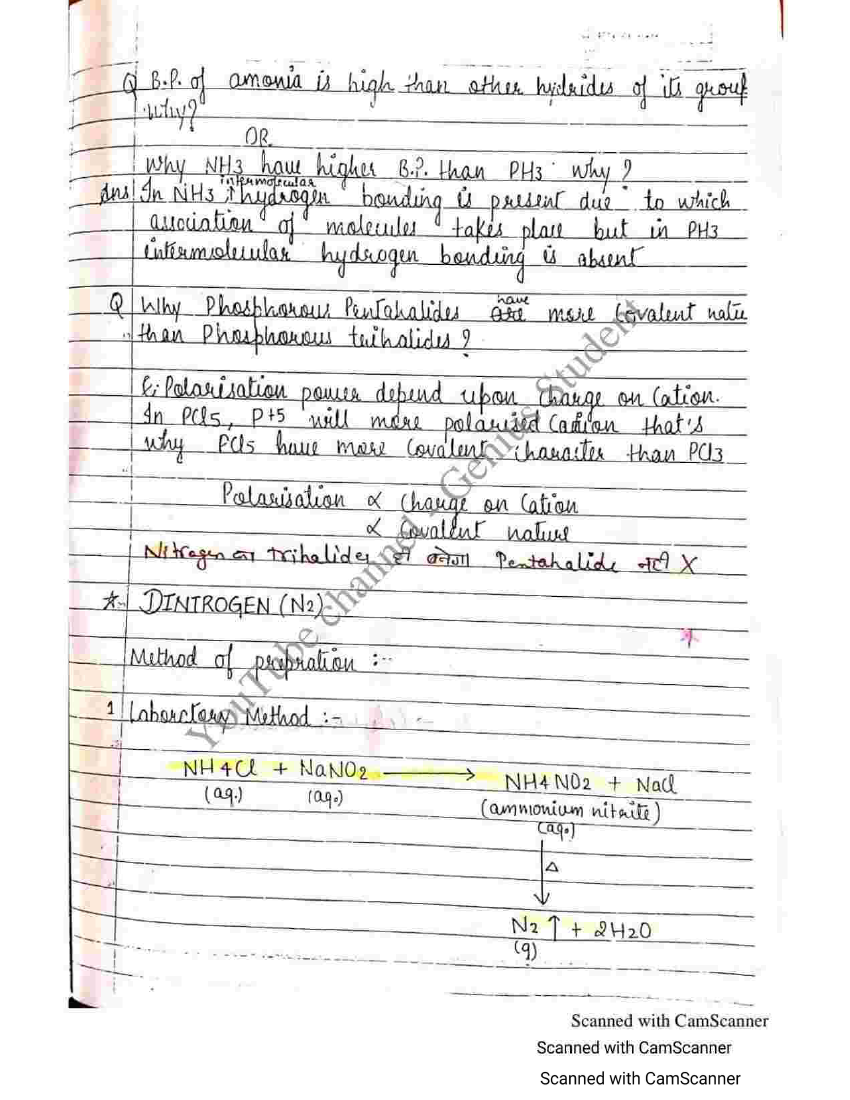 Q B.P. of amonia is high than other hydrides of its group
Why?
OR
Why NH3 have higher B.P. than PH3 Why?
Ans In NH3 intermolecular hydrogen bonding is present due to which
association of molecules takes place but in PH3
intermolecular hydrogen bonding is absent
Q Why Phosphorous Pentahalides have more Covalent natue
than Phosphorous trihalides?
Polarisation power depend upon charge on Cation.
In PCl5, P+5 will more polarised Cation that's
why PCl5 have more Covalent character than PCl3
Polarisation ∝ Charge on Cation
∝ Covalent nature
Nitrogen का trihalides ही बनेगा Pentahalide नही X
☆ DINTROGEN (N2)
Method of prepration :--
1 Laborctory Method :-
NH4Cl + NaNO2 → NH4NO2 + NaCl
(aq.) (aq.) (ammonium nitrite)
(aq.)
△
N2↑ + 2H2O
(g)
YouTube channel - Genius Student
Scanned with CamScanner
Scanned with CamScanner
Scanned with CamScanner